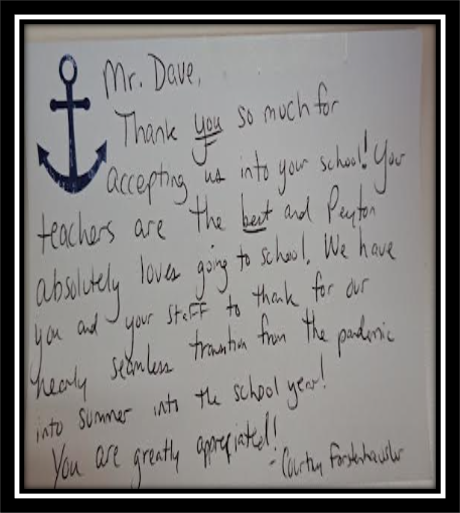 Mr. Dave,
Thank you so much for
accepting us into your school! Your
teachers are the best and Peyton
absolutely loves going to school. We have
you and your staff to thank for our
nearly seamless transition from the pandemic
into summer into the school year!
You are greatly appreciated!
- Courtney